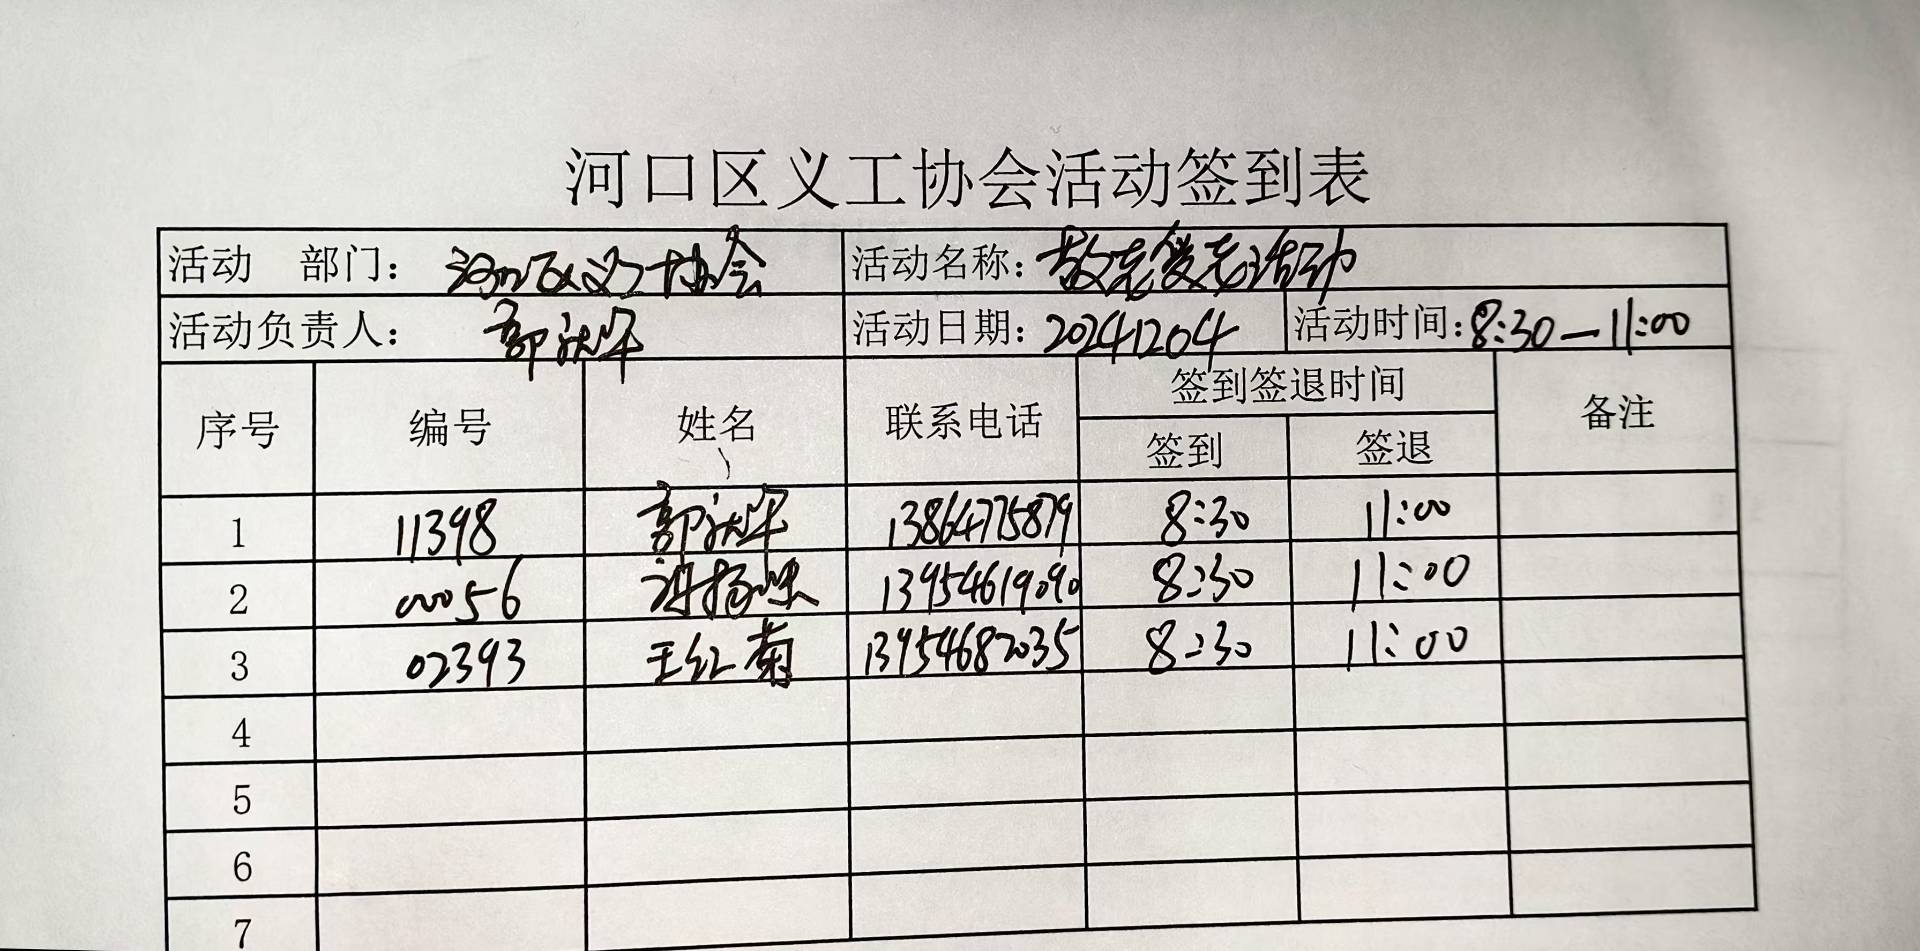 河口区义工协会活动签到表
活动 部门： 河口区义工协会 活动名称：敬老爱老活动
活动负责人： 郭 活动日期：20241204 活动时间：8:30—11:00
序号 编号 姓名 联系电话 签到签退时间 备注
签到 签退
1 11398 郭 13864775879 8:30 11:00
2 00056 13954619090 8:30 11:00
3 02393 王红菊 13954682035 8:30 11:00
4
5
6
7